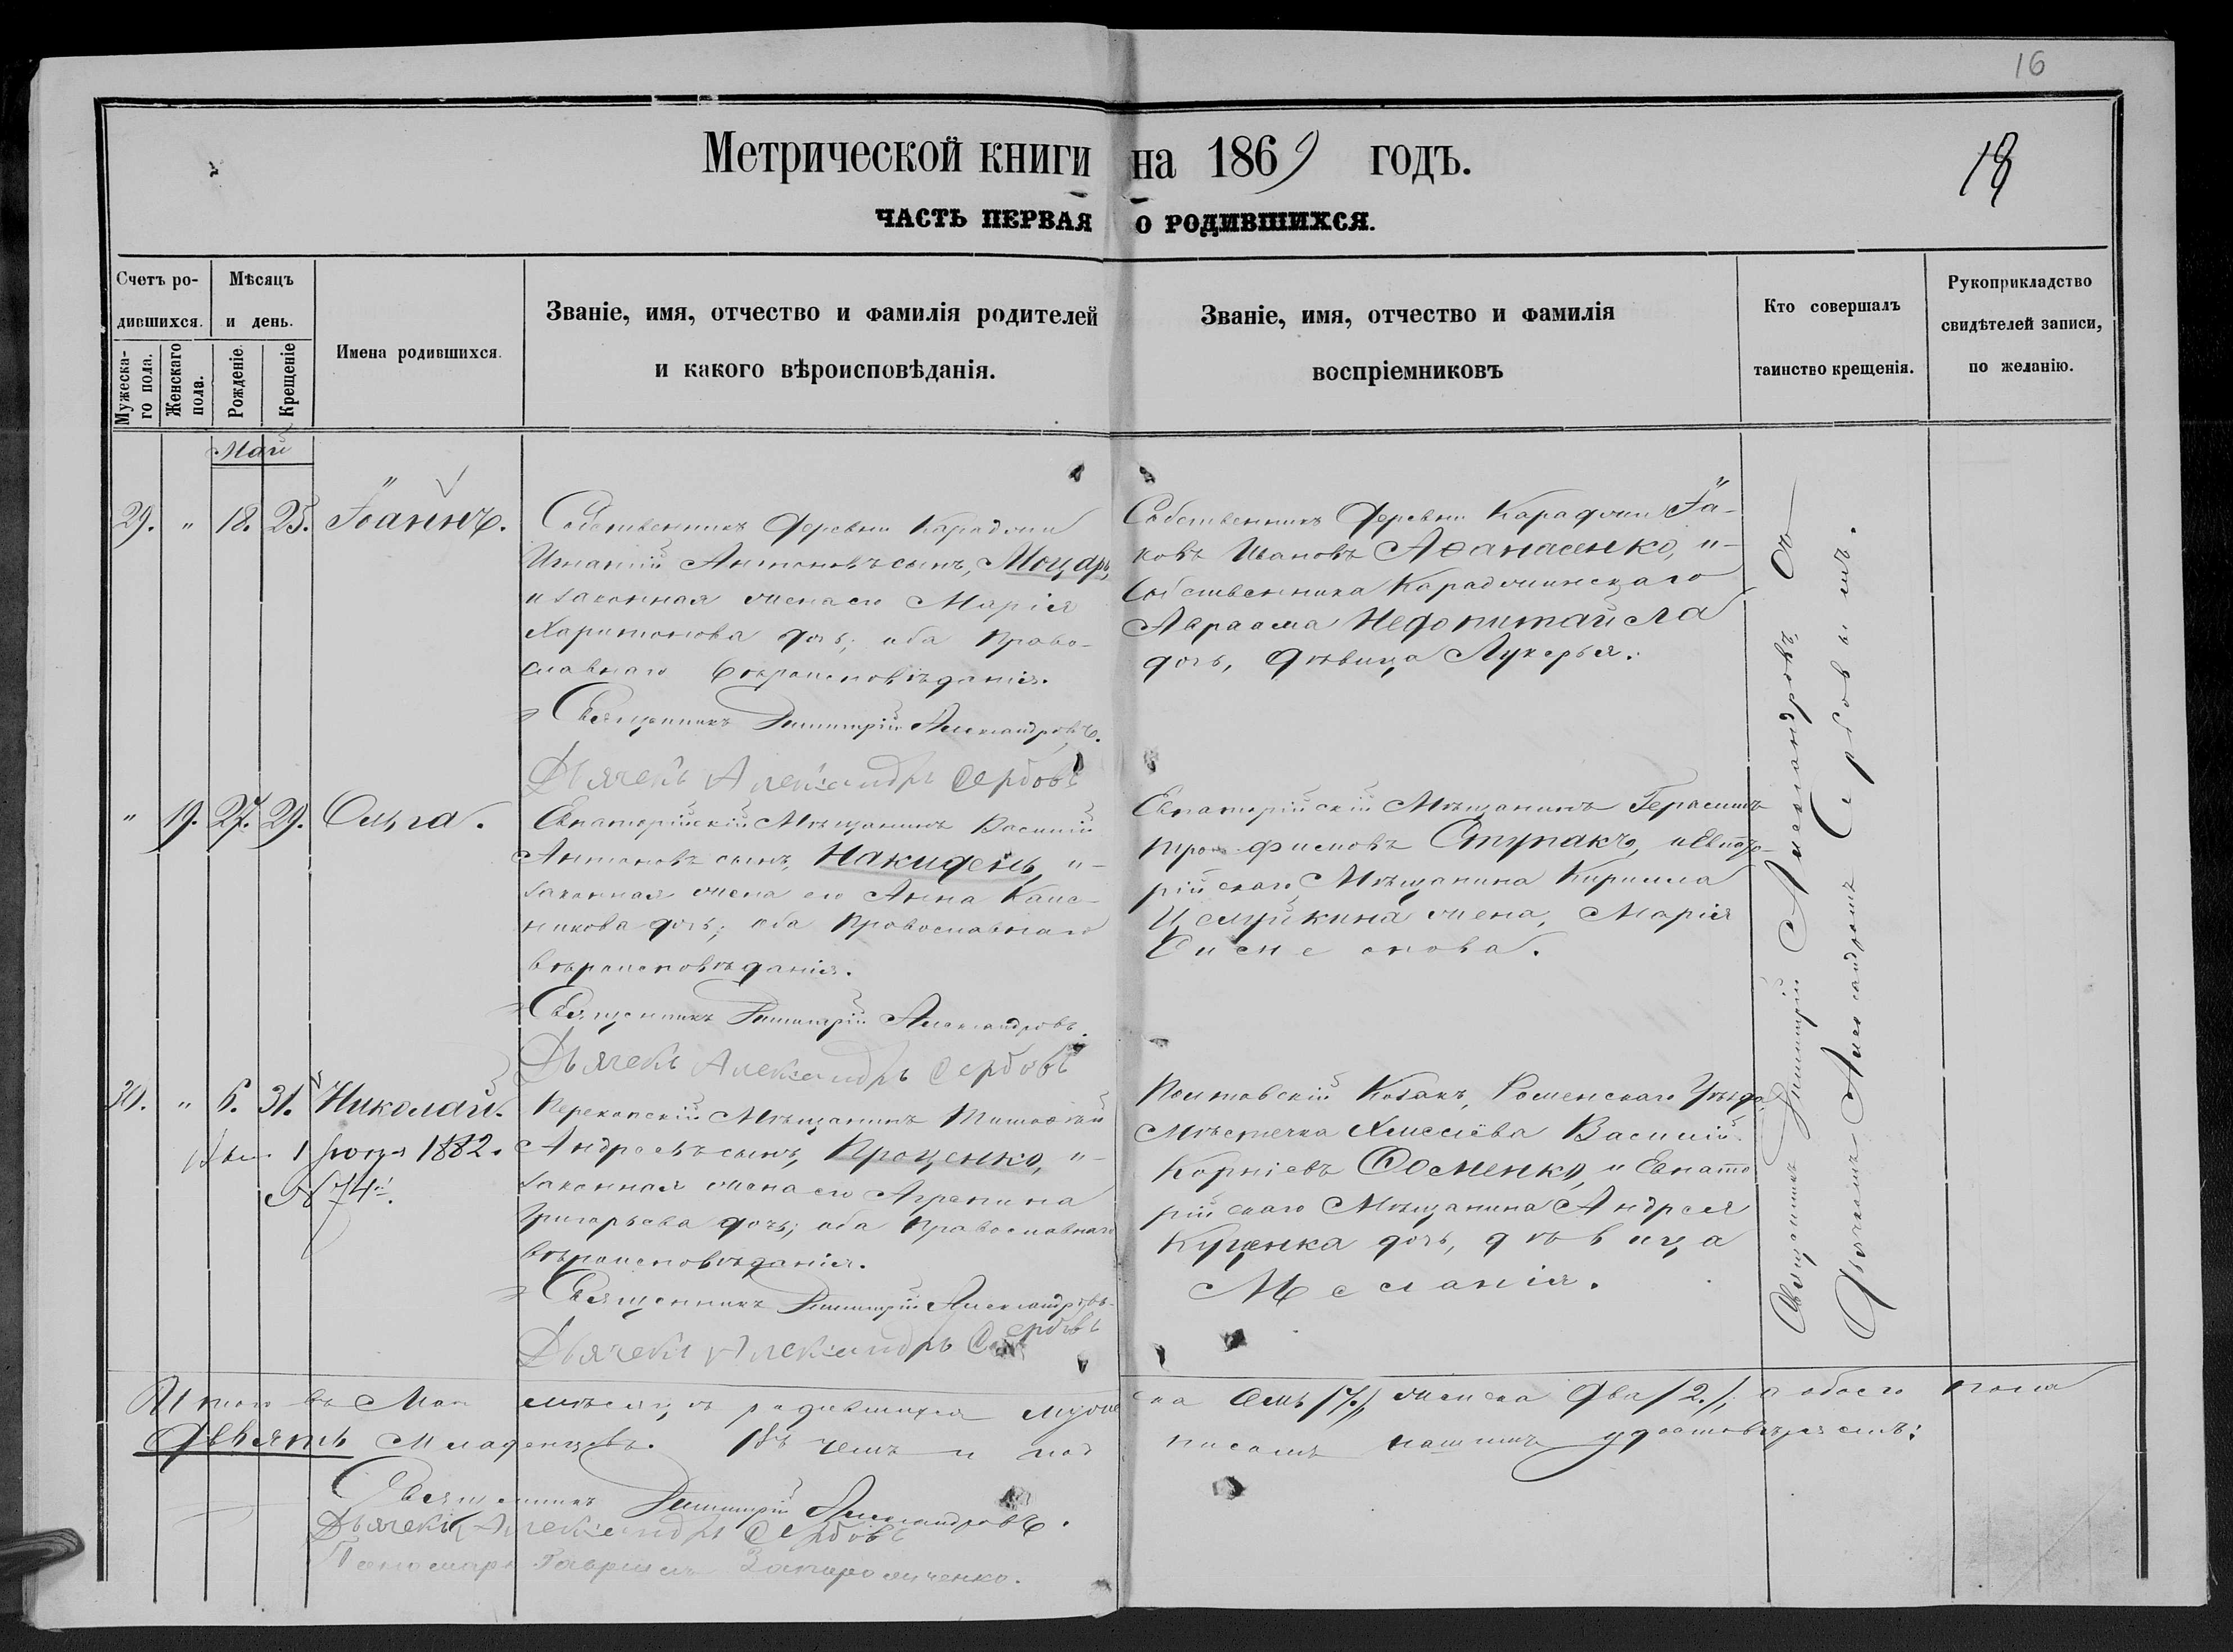 16
Метрической книги на 1869 годъ.
18
ЧАСТЬ ПЕРВАЯ О РОДИВШИХСЯ.
Счетъ ро-
дившихся.
Мужеска-
го пола.
Женскаго
пола.
Мѣсяцъ
и день.
Рожденіе.
Крещеніе
Имена родившихся.
Званіе, имя, отчество и фамилія родителей
и какого вѣроисповѣданія.
Званіе, имя, отчество и фамилія
воспріемниковъ
Кто совершалъ
таинство крещенія.
Рукоприкладство
свидѣтелей записи,
по желанію.
Май
29. " 18. 25. Іоаннъ.
Собственникъ Деревни Караджи
Игнатій Антоновъ сынъ, Моцарь,
и законная жена его Марія
Харитонова дочь; оба Право-
славнаго вѣроисповѣданія.
Священникъ Димитрій Александровъ.
Дьячекъ Александръ Сербовъ
Собственникъ Деревни Караджи Іа-
ковъ Ивановъ Аѳанасенко, и
Собственника Караджинскаго
Авраама Недопитайсла
дочь, дѣвица Лукерья.
" 19. 27. 29. Ольга.
Евпаторійскій Мѣщанинъ Василій
Антоновъ сынъ, Накидень, и
законная жена его Анна
дочь; оба Православнаго
вѣроисповѣданія.
Священникъ Димитрій Александровъ.
Дьячекъ Александръ Сербовъ
Евпаторійскій Мѣщанинъ Герасимъ
Ступакъ, и Евпато-
рійскаго Мѣщанина Кирилла
жена, Марія
30. " 6. 31. Николай.
1 1882.
№ 74й.
Перекопскій Мѣщанинъ Тимоѳей
Андреевъ сынъ, Проценко, и
законная жена его Агрепина
Григорьева дочь; оба Православнаго
вѣроисповѣданія.
Священникъ Димитрій Александровъ
Дьячекъ Александръ Сербовъ
Полтавскій Козакъ, Роменскаго Уѣзда,
Мѣстечка Хмелёва Василій
Корніевъ Сосменко, и Евпато
рійскаго Мѣщанина Андрея
Куценка дочь, дѣвица
Меланія.
Священникъ Димитрій Александровъ Съ
Дьячкомъ Александромъ Сербовымъ.
Итого въ Маѣ мѣсяцѣ родившихся мужеска Семь /7./, женска Два /2./, а обоего пола
Девять Младенцевъ. Въ чемъ и подписомъ нашимъ удостовѣряемъ:
Священникъ Димитрій Александровъ.
Дьячекъ Александръ Сербовъ
Пономарь Гавріилъ